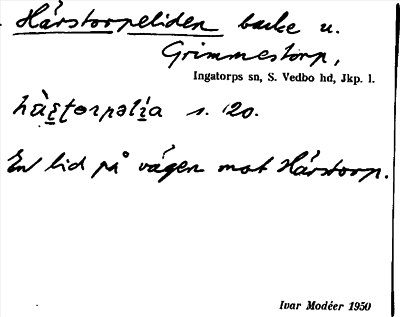 Hårstorpeliden backe u.
Grimmestorp,
Ingatorps sn, S. Vedbo hd, Jkp. l.
s. 120.
En lid på vägen mot Hårstorp.
Ivar Modéer 1950